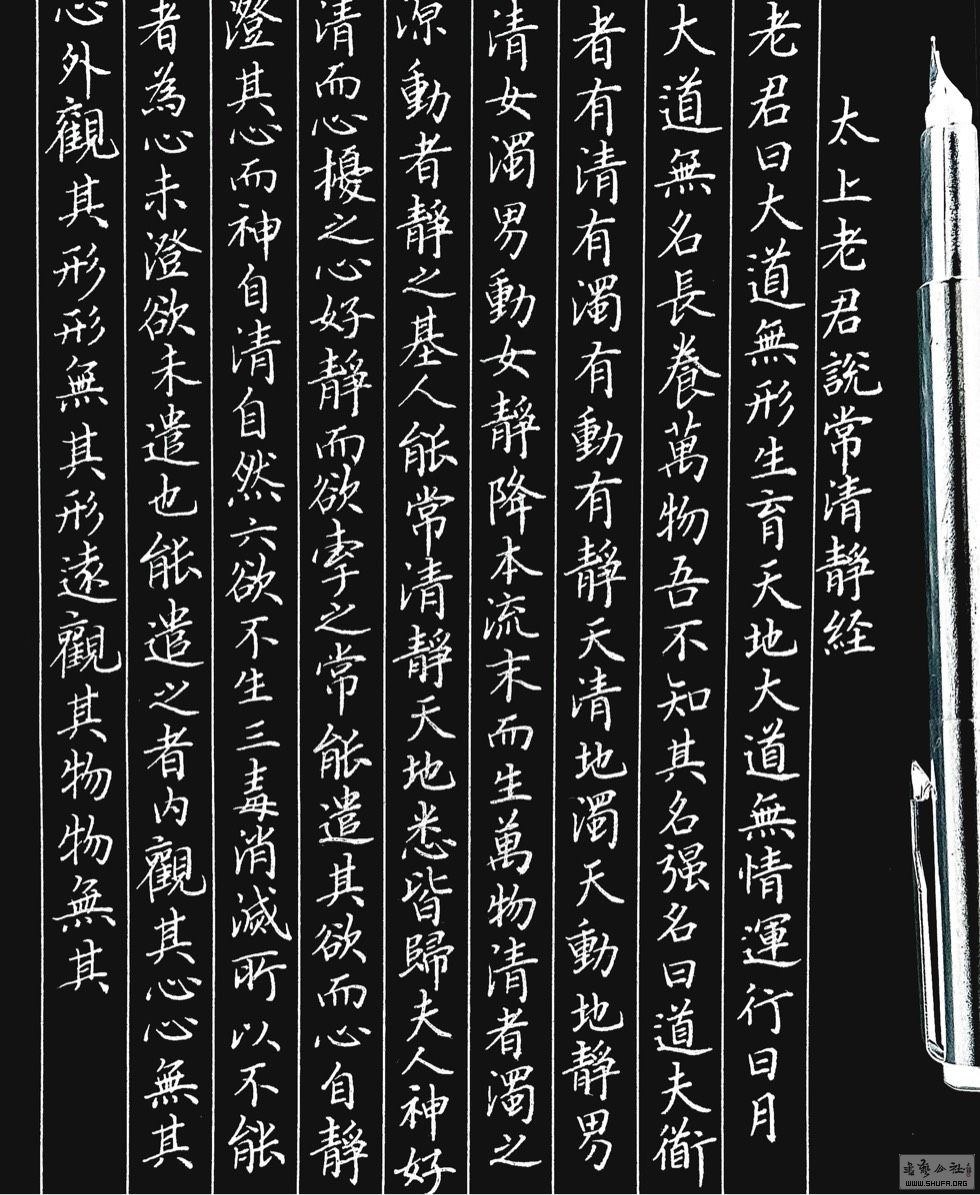 太上老君說常清靜経
老君曰大道無形生育天地大道無情運行日月
大道無名長養萬物吾不知其名强名曰道夫衜
者有清有濁有動有靜天清地濁天動地靜男
清女濁男動女靜降本流末而生萬物清者濁之
源動者靜之基人能常清靜天地悉皆歸夫人神好
清而心擾之心好靜而欲牽之常能遣其欲而心自靜
澄其心而神自清自然六欲不生三毒消滅所以不能
者為心未澄欲未遣也能遣之者内觀其心心無其
心外觀其形形無其形遠觀其物物無其
書藝公社
WWW.SHUFA.ORG